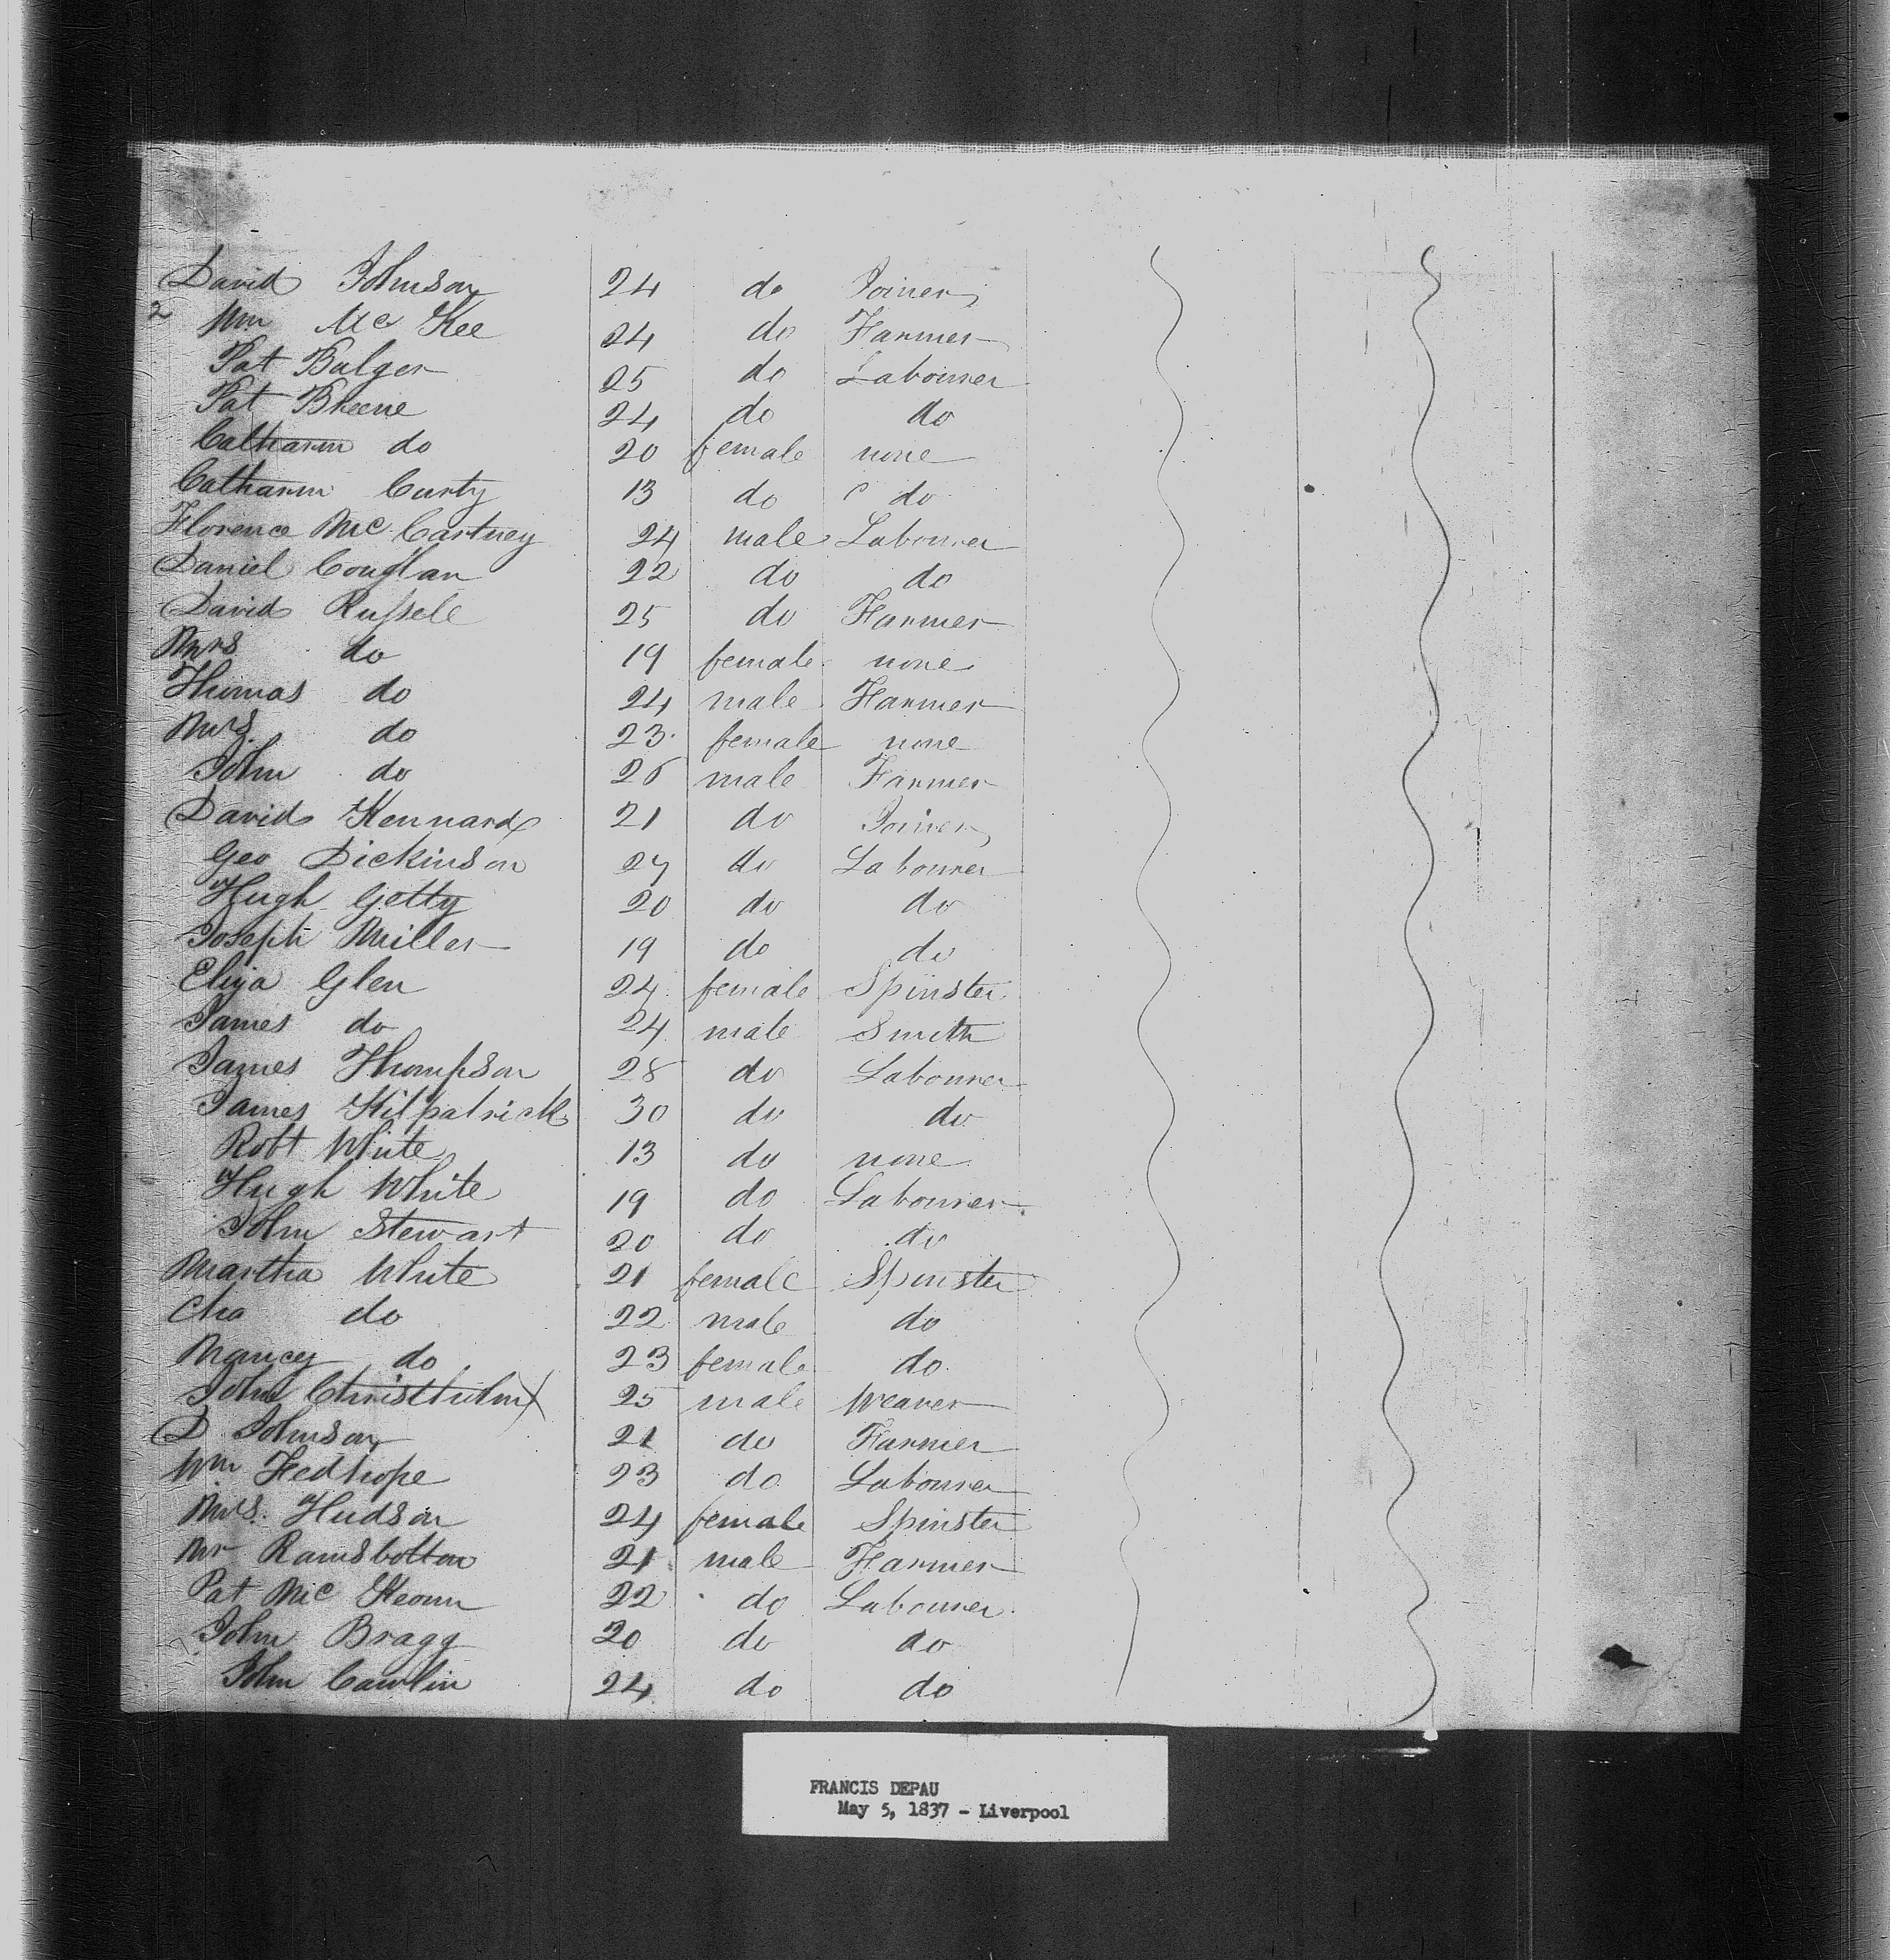 David Johnson 24 do Joiner
2 Wm Mc Kee 24 do Farmer
Pat Bulger 25 do Labourer
Pat Bheene 24 do do
Catharin do 20 female none
Catharin Curty 13 do do
Florence McCartney 24 male Labourer
Daniel Couglan 22 do do
David Russele 25 do Farmer
Mrs do 19 female none
Thomas do 24 male Farmer
Mrs. do 23 female none
John do 26 male Farmer
David Kennard 21 do Joiner
Geo Dickinson 27 do Labourer
Hugh Getty 20 do do
Joseph Miller 19 do do
Eliza Glen 24 female Spinster
James do 24 male Smith
James Thompson 28 do Labourer
James Kilpatrick 30 do do
Robt White 13 do none
Hugh White 19 do Labourer
John Stewart 20 do do
Martha White 21 female Spinster
Cha do 22 male do
Nancy do 23 female do
John 25 male Weaver
D Johnson 21 do Farmer
Wm Hedhope 23 do Labourer
Mrs. Hudson 24 female Spinster
Mr Ramsbottom 21 male Farmer
Pat Mc Keown 22 do Labourer
John Bragg 20 do do
John Cawlin 24 do do
FRANCIS DEPAU
May 5, 1837 - Liverpool